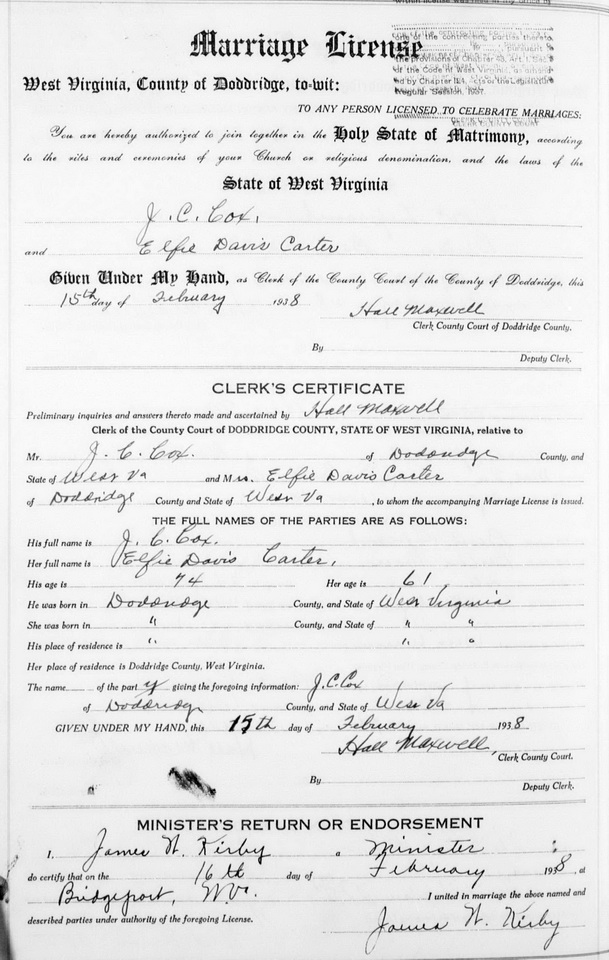 Marriage License
one of the contracting parties thereto,
pursuant
the provisions of Chapter 48, Art. 1, Sec.
of the Code of West Virginia, as amended
by Chapter Acts of the Legislature
Regular Session, 1937.
West Virginia, County of Doddridge, to-wit:
TO ANY PERSON LICENSED TO CELEBRATE MARRIAGES:
You are hereby authorized to join together in the Holy State of Matrimony, according
to the rites and ceremonies of your Church or religious denomination, and the laws of the
State of West Virginia
J. C. Cox.
and Elfie Davis Carter
Given Under My Hand, as Clerk of the County Court of the County of Doddridge, this
15th day of February 1938 Hall Maxwell
Clerk County Court of Doddridge County.
By
Deputy Clerk.
CLERK'S CERTIFICATE
Preliminary inquiries and answers thereto made and ascertained by Hall Maxwell
Clerk of the County Court of DODDRIDGE COUNTY, STATE OF WEST VIRGINIA, relative to
Mr. J. C. Cox. of Doddridge County, and
State of West Va and Mrs. Elfie Davis Carter
of Doddridge County and State of West Va, to whom the accompanying Marriage License is issued.
THE FULL NAMES OF THE PARTIES ARE AS FOLLOWS:
His full name is J. C. Cox.
Her full name is Elfie Davis Carter,
His age is 74 Her age is 61
He was born in Doddridge County, and State of West Virginia
She was born in " County, and State of " "
His place of residence is " " "
Her place of residence is Doddridge County, West Virginia.
The name of the party giving the foregoing information: J. C. Cox
of Doddridge County, and State of West Va
GIVEN UNDER MY HAND, this 15th day of February 1938
Hall Maxwell, Clerk County Court.
By
Deputy Clerk.
MINISTER'S RETURN OR ENDORSEMENT
I, James W. Kirby a Minister
do certify that on the 16th day of February 1938, at
Bridgeport, W Va. I united in marriage the above named and
described parties under authority of the foregoing License.
James W. Kirby